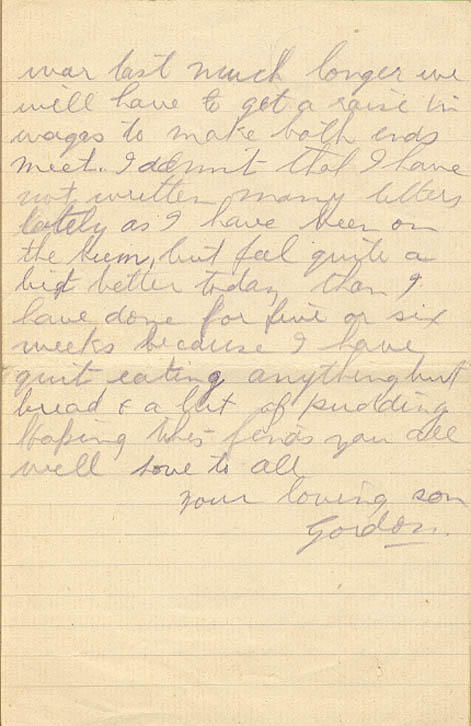 war last much longer we
will have to get a raise in
wages to make both ends
meet. I admit that I have
not written many letters
lately as I have been on
the bum, but feel quite a
bit better today than I
have done for five or six
weeks because I have
quit eating anything but
bread & a bit of pudding
Hoping this finds you all
well love to all
your loving son
Gordon.